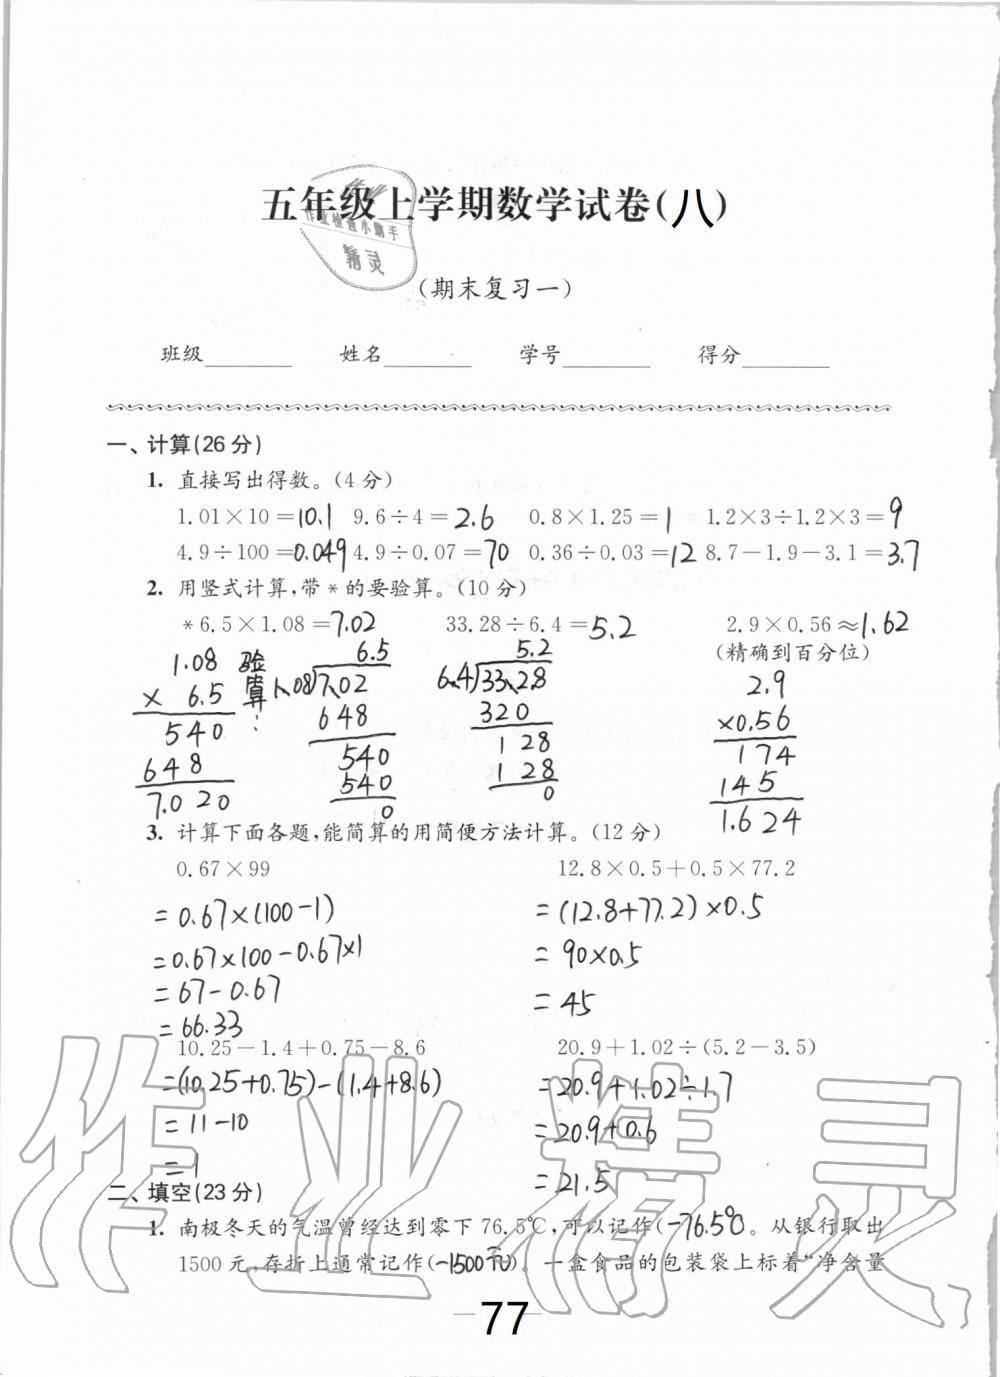 五年级上学期数学试卷(八)
作业检查小助手
精灵
(期末复习一)
班级______ 姓名______ 学号______ 得分______
一、计算(26分)
1. 直接写出得数。(4分)
1.01×10=10.1 9.6÷4=2.6 0.8×1.25=1 1.2×3÷1.2×3=9
4.9÷100=0.049 4.9÷0.07=70 0.36÷0.03=12 8.7-1.9-3.1=3.7
2. 用竖式计算,带*的要验算。(10分)
*6.5×1.08=7.02 33.28÷6.4=5.2 2.9×0.56≈1.62
(精确到百分位)
1.08
× 6.5
540
648
7.020
验算:
6.5
1.08 7.02
648
540
540
0
5.2
6.4 33.28
320
128
128
0
2.9
×0.56
174
145
1.624
3. 计算下面各题,能简算的用简便方法计算。(12分)
0.67×99
=0.67×(100-1)
=0.67×100-0.67×1
=67-0.67
=66.33
12.8×0.5+0.5×77.2
=(12.8+77.2)×0.5
=90×0.5
=45
10.25-1.4+0.75-8.6
=(10.25+0.75)-(1.4+8.6)
=11-10
=1
20.9+1.02÷(5.2-3.5)
=20.9+1.02÷1.7
=20.9+0.6
=21.5
二、填空(23分)
1. 南极冬天的气温曾经达到零下76.5℃,可以记作(-76.5℃)。从银行取出
1500元,存折上通常记作(-1500元)。一盒食品的包装袋上标着"净含量
77
作业精灵